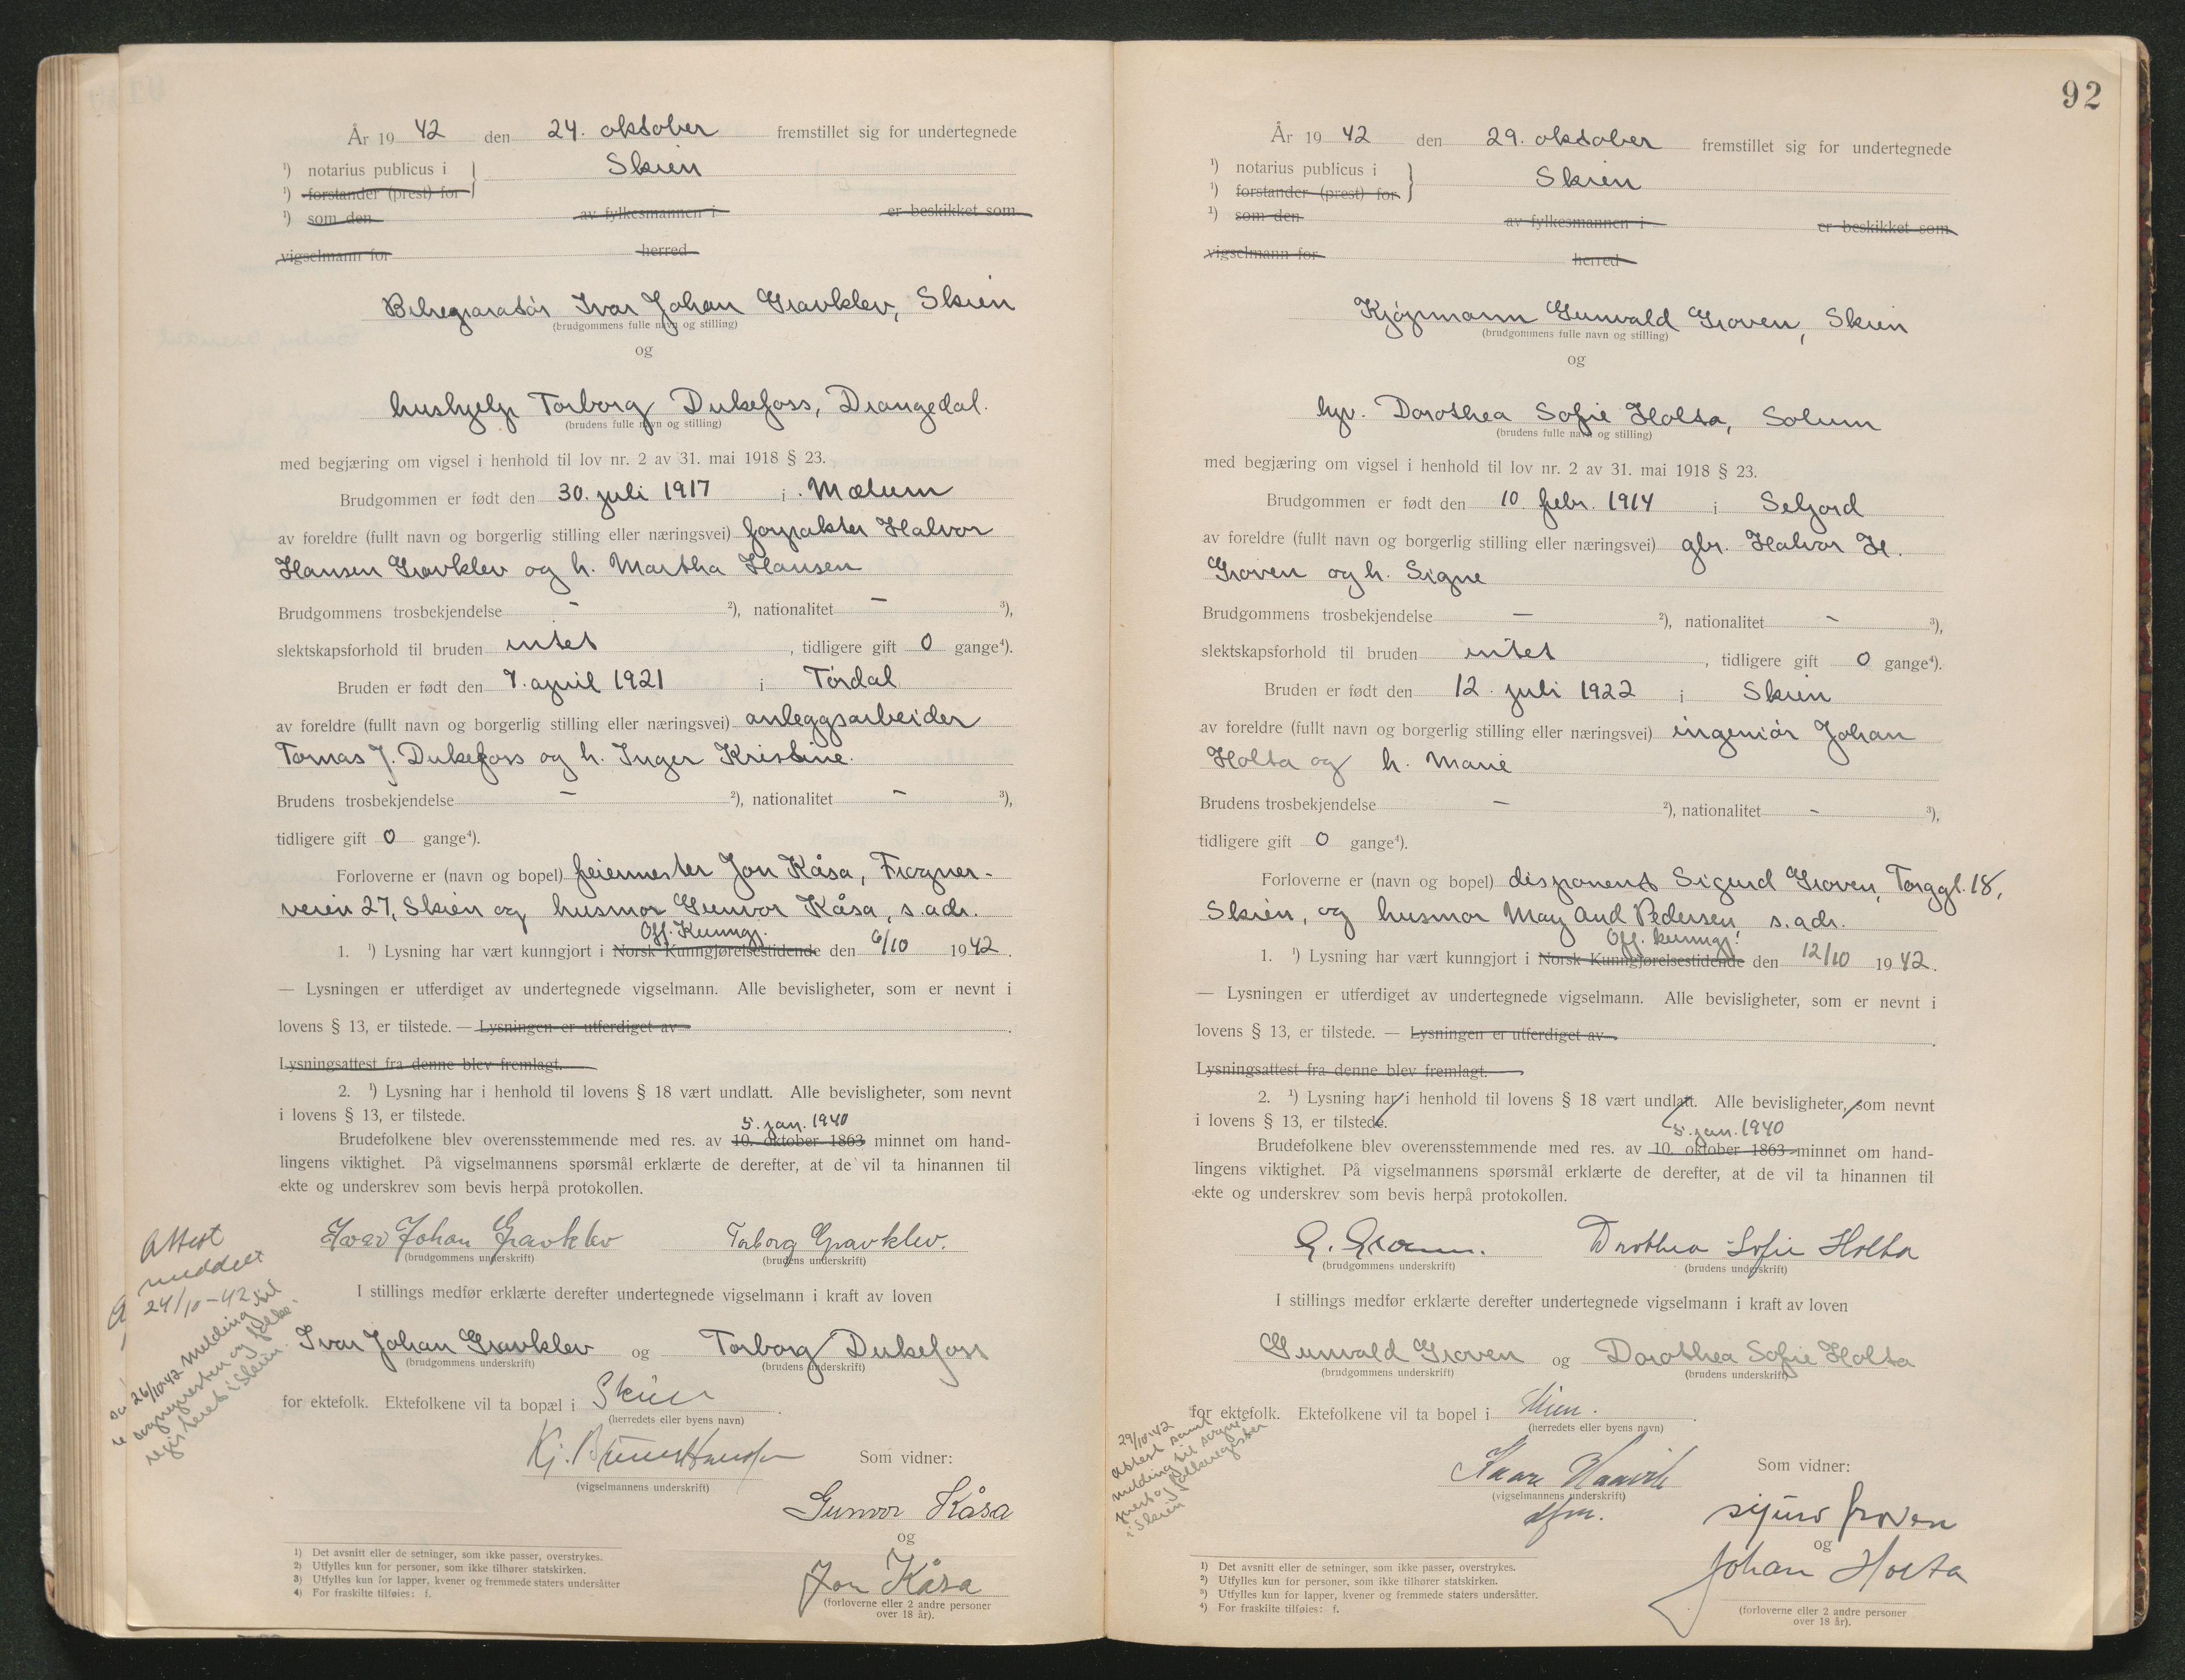 År 1942 den 24. oktober fremstillet sig for undertegnede
¹) notarius publicus i } Skien
¹) forstander (prest) for
¹) som den av fylkesmannen i er beskikket som
vigselmann for herred
Bilreparatør Ivar Johan Gravklev, Skien
(brudgommens fulle navn og stilling)
og
hushjelp Torborg Dukefoss, Drangedal.
(brudens fulle navn og stilling)
med begjæring om vigsel i henhold til lov nr. 2 av 31. mai 1918 § 23.
Brudgommen er født den 30. juli 1917 i Mælum
av foreldre (fullt navn og borgerlig stilling eller næringsvei) forpakter Halvor
Hansen Gravklev og h. Martha Hansen
Brudgommens trosbekjendelse - ²), nationalitet - ³),
slektskapsforhold til bruden intet, tidligere gift 0 gange⁴).
Bruden er født den 7. april 1921 i Tørdal
av foreldre (fullt navn og borgerlig stilling eller næringsvei) anleggsarbeider
Tomas J. Dukefoss og h. Inger Kristine.
Brudens trosbekjendelse - ²), nationalitet - ³),
tidligere gift 0 gange⁴).
Forloverne er (navn og bopel) feiermester Jon Kåsa, Frogner-
veien 27, Skien og husmor Gunvor Kåsa, s. adr.
Off. Kunngj.
1. ¹) Lysning har vært kunngjort i Norsk Kunngjørelsestidende den 6/10 1942.
— Lysningen er utferdiget av undertegnede vigselmann. Alle bevisligheter, som er nevnt i
lovens § 13, er tilstede. — Lysningen er utferdiget av
Lysningsattest fra denne blev fremlagt.
2. ¹) Lysning har i henhold til lovens § 18 vært undlatt. Alle bevisligheter, som nevnt
i lovens § 13, er tilstede.
5. jan. 1940
Brudefolkene blev overensstemmende med res. av 10. oktober 1863 minnet om hand-
lingens viktighet. På vigselmannens spørsmål erklærte de derefter, at de vil ta hinannen til
ekte og underskrev som bevis herpå protokollen.
Ivar Johan Gravklev Torborg Gravklev.
(brudgommens underskrift) (brudens underskrift)
I stillings medfør erklærte derefter undertegnede vigselmann i kraft av loven
Ivar Johan Gravklev og Torborg Dukefoss
(brudgommens underskrift) (brudens underskrift)
for ektefolk. Ektefolkene vil ta bopæl i Skien.
(herredets eller byens navn)
Kj.
(vigselmannens underskrift)
Som vidner:
Gunvor Kåsa
og
Jon Kåsa
(forloverne eller 2 andre personer
over 18 år).
Attest
meddelt
24/10-42
26/10-42 melding til
sognepresten og folke-
registeret i Skien.
1) Det avsnitt eller de setninger, som ikke passer, overstrykes.
2) Utfylles kun for personer, som ikke tilhører statskirken.
3) Utfylles kun for lapper, kvener og fremmede staters undersåtter
4) For fraskilte tilføies: f.
92
År 1942 den 29. oktober fremstillet sig for undertegnede
¹) notarius publicus i } Skien
¹) forstander (prest) for
¹) som den av fylkesmannen i er beskikket som
vigselmann for herred
Kjøpmann Gunvald Groven, Skien
(brudgommens fulle navn og stilling)
og
hr. Dorothea Sofie Holta, Solum
(brudens fulle navn og stilling)
med begjæring om vigsel i henhold til lov nr. 2 av 31. mai 1918 § 23.
Brudgommen er født den 10. febr. 1914 i Seljord
av foreldre (fullt navn og borgerlig stilling eller næringsvei) gbr. Halvor H.
Groven og h. Signe
Brudgommens trosbekjendelse - ²), nationalitet - ³),
slektskapsforhold til bruden intet, tidligere gift 0 gange⁴).
Bruden er født den 12. juli 1922 i Skien
av foreldre (fullt navn og borgerlig stilling eller næringsvei) ingeniør Johan
Holta og h. Marie
Brudens trosbekjendelse - ²), nationalitet - ³),
tidligere gift 0 gange⁴).
Forloverne er (navn og bopel) disponent Sigurd Groven, Torggt. 18,
Skien, og husmor May Aud Pedersen, s. adr.
Off. kunngj.
1. ¹) Lysning har vært kunngjort i Norsk Kunngjørelsestidende den 12/10 1942.
— Lysningen er utferdiget av undertegnede vigselmann. Alle bevisligheter, som er nevnt i
lovens § 13, er tilstede. — Lysningen er utferdiget av
Lysningsattest fra denne blev fremlagt.
2. ¹) Lysning har i henhold til lovens § 18 vært undlatt. Alle bevisligheter, som nevnt
i lovens § 13, er tilstede.
5. jan. 1940
Brudefolkene blev overensstemmende med res. av 10. oktober 1863 minnet om hand-
lingens viktighet. På vigselmannens spørsmål erklærte de derefter, at de vil ta hinannen til
ekte og underskrev som bevis herpå protokollen.
G. Groven. Drothea Sofie Holta
(brudgommens underskrift) (brudens underskrift)
I stillings medfør erklærte derefter undertegnede vigselmann i kraft av loven
Gunvald Groven og Dorothea Sofie Holta
(brudgommens underskrift) (brudens underskrift)
for ektefolk. Ektefolkene vil ta bopel i Skien.
(herredets eller byens navn)
Kaare Haavik
(vigselmannens underskrift)
dfm.
Som vidner:
Sigurd Groven
og
Johan Holta
(forloverne eller 2 andre personer
over 18 år).
29/10-42
attest samt
melding til sogne-
prest og folkeregister
i Skien
1) Det avsnitt eller de setninger, som ikke passer, overstrykes.
2) Utfylles kun for personer, som ikke tilhører statskirken.
3) Utfylles kun for lapper, kvener og fremmede staters undersåtter.
4) For fraskilte tilføies: f.